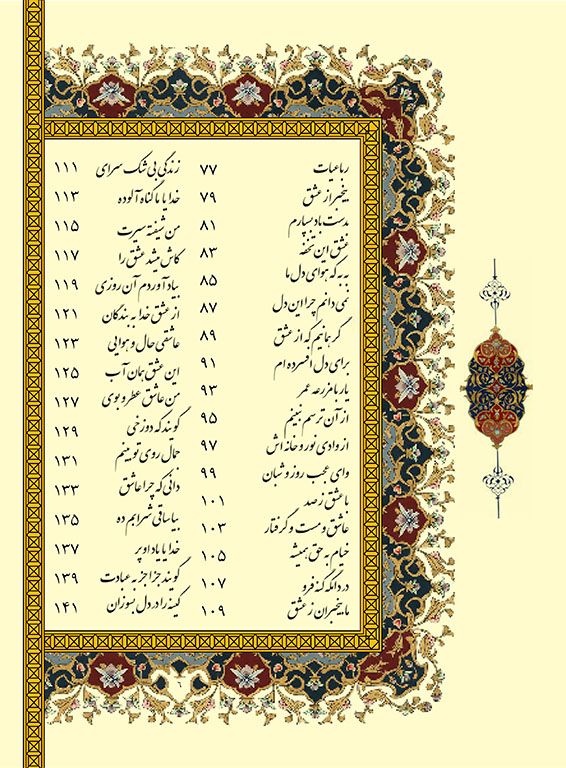 رباعیات ۷۷
بیخبر از عشق ۷۹
بدست باد بسپارم ۸۱
عشق این تحفه ۸۳
به که هوای دل ما ۸۵
نمی دانم چرا این دل ۸۷
گر بمانیم که از عشق ۸۹
برای دل افسرده ام ۹۱
یار با مزرعه عمر ۹۳
از آن ترسم نبینم ۹۵
از وادی نور و خانه اش ۹۷
وای عجب روز و شبان ۹۹
با عشق ز صد ۱۰۱
عاشق و مست و گرفتار ۱۰۳
خیام به حق همیشه ۱۰۵
در دانگه کنه فرو ۱۰۷
ما بیخبران ز عشق ۱۰۹
زندگی بی شک سرای ۱۱۱
خدایا با گناه آلوده ۱۱۳
من شیفته سیرت ۱۱۵
کاش میشد عشق را ۱۱۷
بیاد آوردم آن روزی ۱۱۹
از عشق خدا به بندگان ۱۲۱
عاشقی حال و هوایی ۱۲۳
این عشق همان آب ۱۲۵
من عاشق عطر و بوی ۱۲۷
گویند که دوزخی ۱۲۹
جمال روی تو بینم ۱۳۱
دانی که چرا عاشق ۱۳۳
بیا ساقی شرابم ده ۱۳۵
خدایا یاد او پر ۱۳۷
گویند جزا جز به عبادت ۱۳۹
کینه را در دل بسوزان ۱۴۱